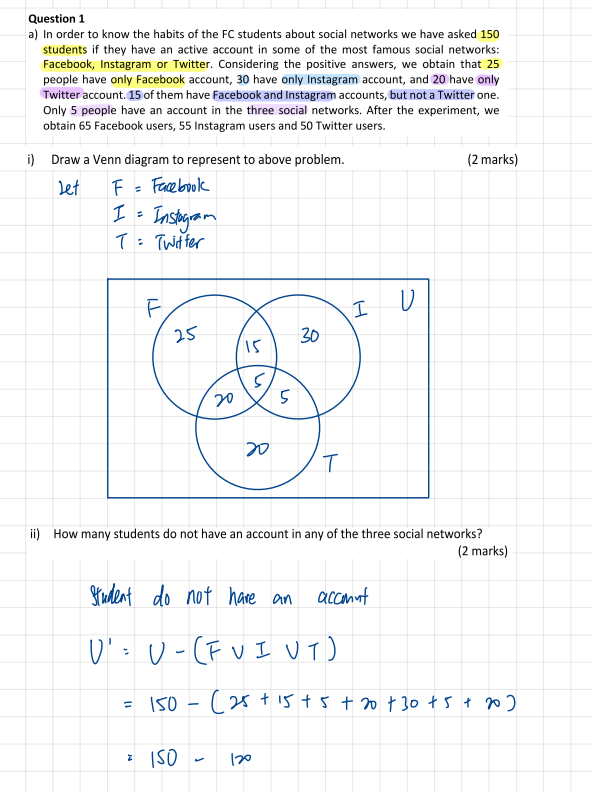 Question 1
a) In order to know the habits of the FC students about social networks we have asked 150
students if they have an active account in some of the most famous social networks:
Facebook, Instagram or Twitter. Considering the positive answers, we obtain that 25
people have only Facebook account, 30 have only Instagram account, and 20 have only
Twitter account. 15 of them have Facebook and Instagram accounts, but not a Twitter one.
Only 5 people have an account in the three social networks. After the experiment, we
obtain 65 Facebook users, 55 Instagram users and 50 Twitter users.
i) Draw a Venn diagram to represent to above problem. (2 marks)
Let F = Facebook
I = Instagram
T = Twitter
F I U
25 30
15
5
20 5
20
T
ii) How many students do not have an account in any of the three social networks?
(2 marks)
Student do not have an account
U' = U - (F ∪ I ∪ T)
= 150 - (25 + 15 + 5 + 20 + 30 + 5 + 20)
= 150 - 120